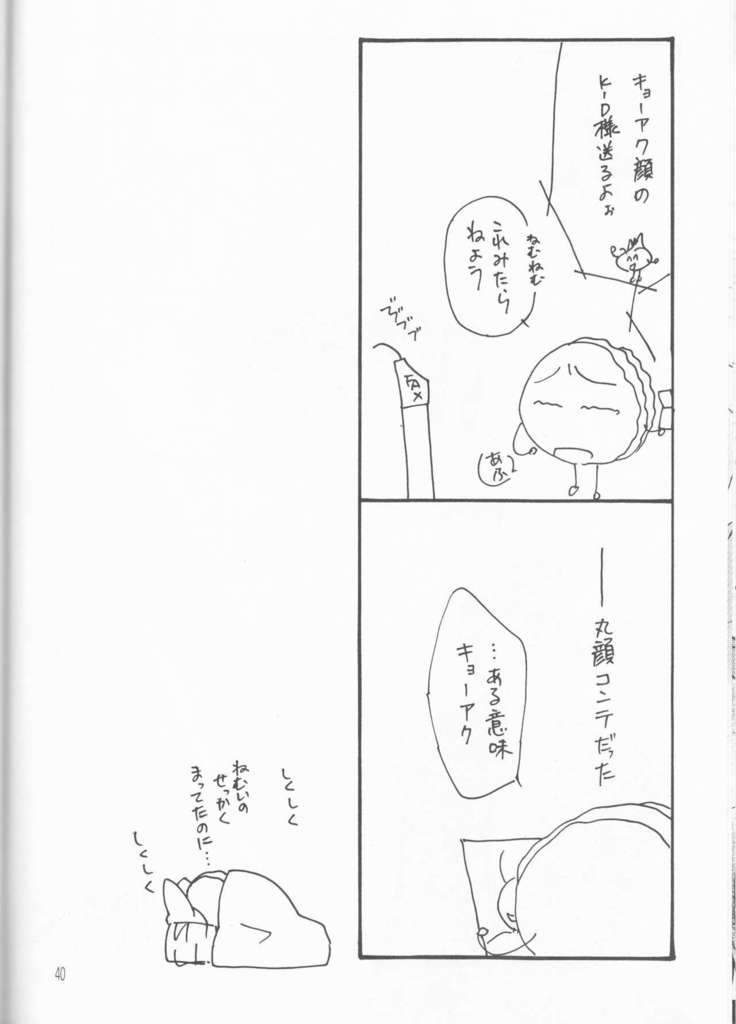 キョーアク顔の
K-D様送るよぉ
ねむねむ
これみたら
ねよう
デデブブ
FAX
あふ
――丸顔コンテだった
…ある意味
キョーアク
しくしく
ねむいの
せっかく
まってたのに…
しくしく
40